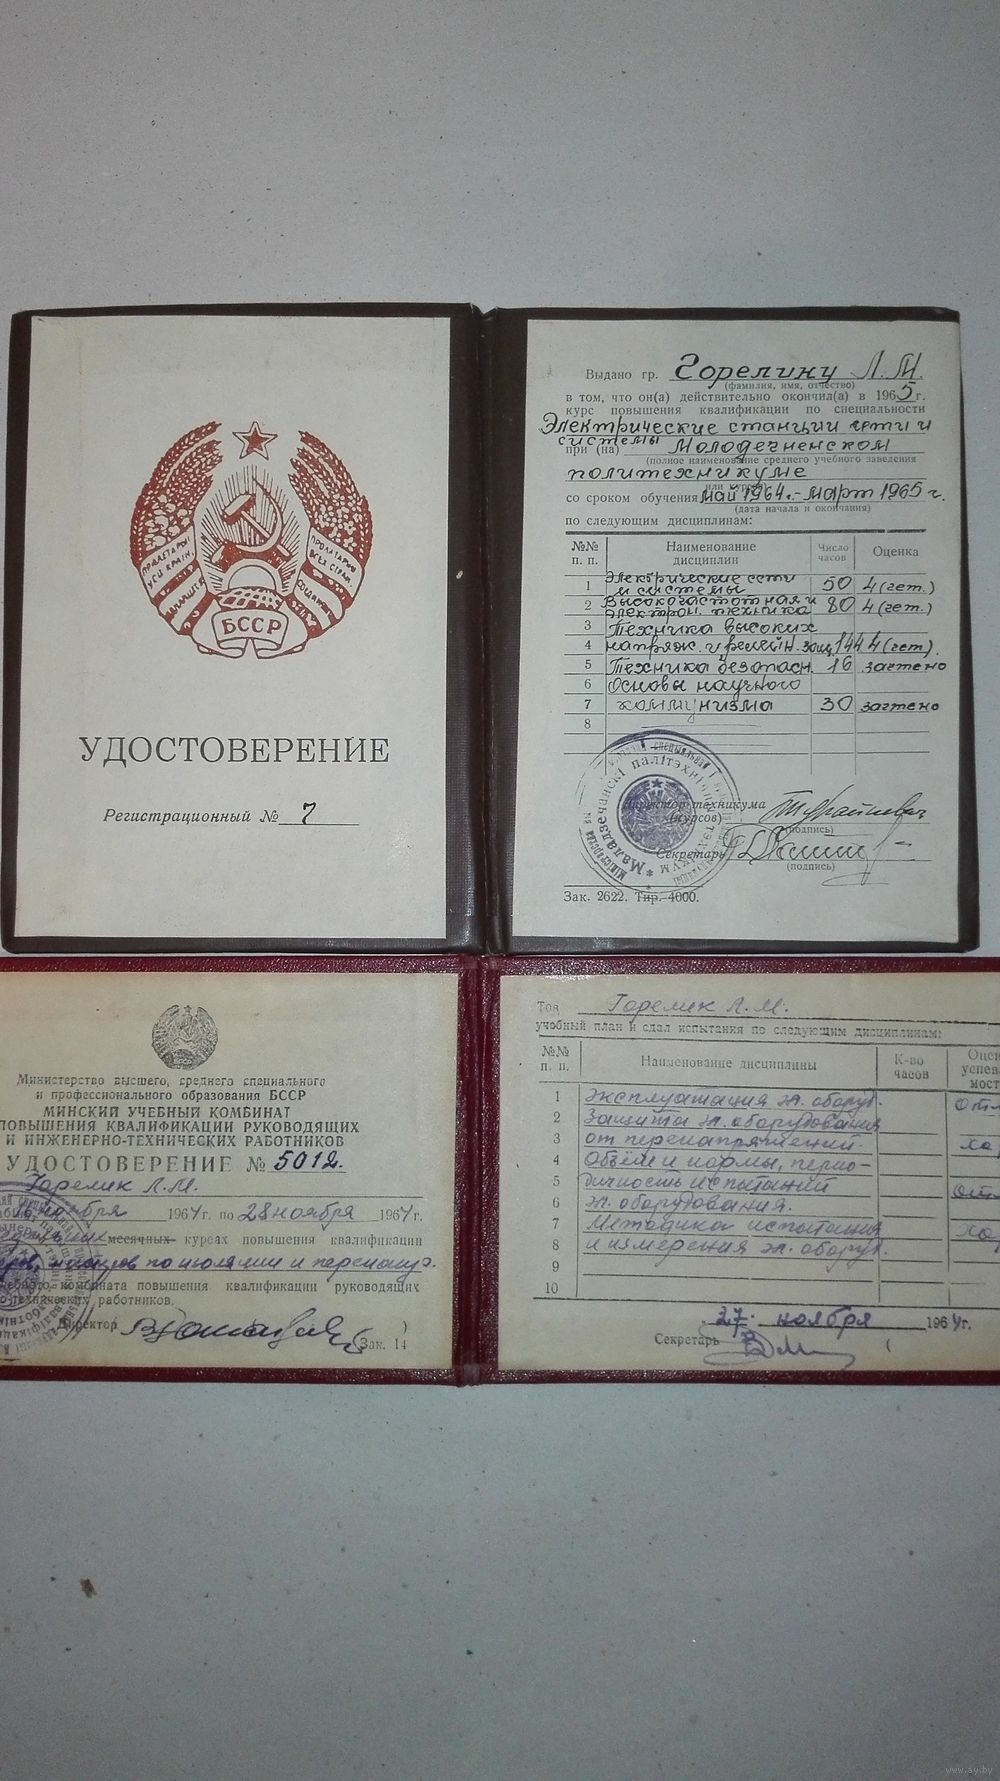 ПРОЛЕТАРЫІ
УСІХ КРАІН,
ПРОЛЕТАРИИ
ВСЕХ СТРАН,
БССР
УДОСТОВЕРЕНИЕ
Регистрационный № 7
Выдано гр. Горелику Л. М.
(фамилия, имя, отчество)
в том, что он(а) действительно окончил(а) в 1965 г.
курс повышения квалификации по специальности
Электрические станции сети и
системы
при (на) Молодечненском
(полное наименование среднего учебного заведения
политехникуме
или курсов)
со сроком обучения май 1964. - март 1965 г.
(дата начала и окончания)
по следующим дисциплинам:
№№ п. п. Наименование дисциплин Число часов Оценка
1 Электрические сети
и системы 50 4 (чет.)
2 Высокочастотная и
электрон. техника 80 4 (чет.)
3 Техника высоких
4 напряж. и релейн. защ. 144 4 (чет).
5 Техника безопасн. 16 зачтено
6 Основы научного
7 коммунизма 30 зачтено
8
Маладзечанскі палітэхнікум
Директор техникума
(курсов)
(подпись)
Секретарь
(подпись)
Зак. 2622. Тир. 4000.
Министерство высшего, среднего специального
и профессионального образования БССР
МИНСКИЙ УЧЕБНЫЙ КОМБИНАТ
ПОВЫШЕНИЯ КВАЛИФИКАЦИИ РУКОВОДЯЩИХ
И ИНЖЕНЕРНО-ТЕХНИЧЕСКИХ РАБОТНИКОВ
УДОСТОВЕРЕНИЕ № 5012.
Горелик Л. М.
1964 г. по 28 ноября 1964 г.
месячных курсах повышения квалификации
по изоляции и перенапр.
учебного комбината повышения квалификации руководящих
работников.
Директор
Зак. 14
Тов. Горелик Л. М.
учебный план и сдал испытания по следующим дисциплинам:
№№ п. п. Наименование дисциплины К-во часов
1 Эксплуатация эл. оборуд.
2 Защита эл. оборудования
3 от перенапряжений.
4 Объём и нормы, перио-
5 дичность испытаний
6 эл. оборудования.
7 Методика испытания
8 и измерения эл. оборуд.
9
10
27. ноября 1964 г.
Секретарь
www.ay.by